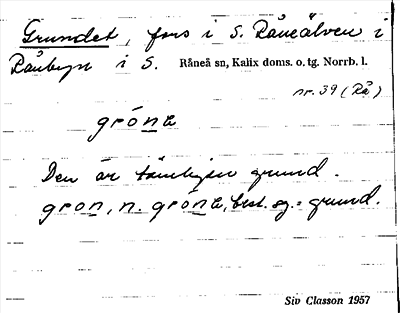 Grundet, fors i S. Råneälven i
Rånbyn i S. Råneå sn, Kalix doms. o. tg. Norrb. l.
nr. 39 (Rå)
gróna
Den är tämligen grund.
gron, n. gróna, best. sg. = grund.
Siv Classon 1957